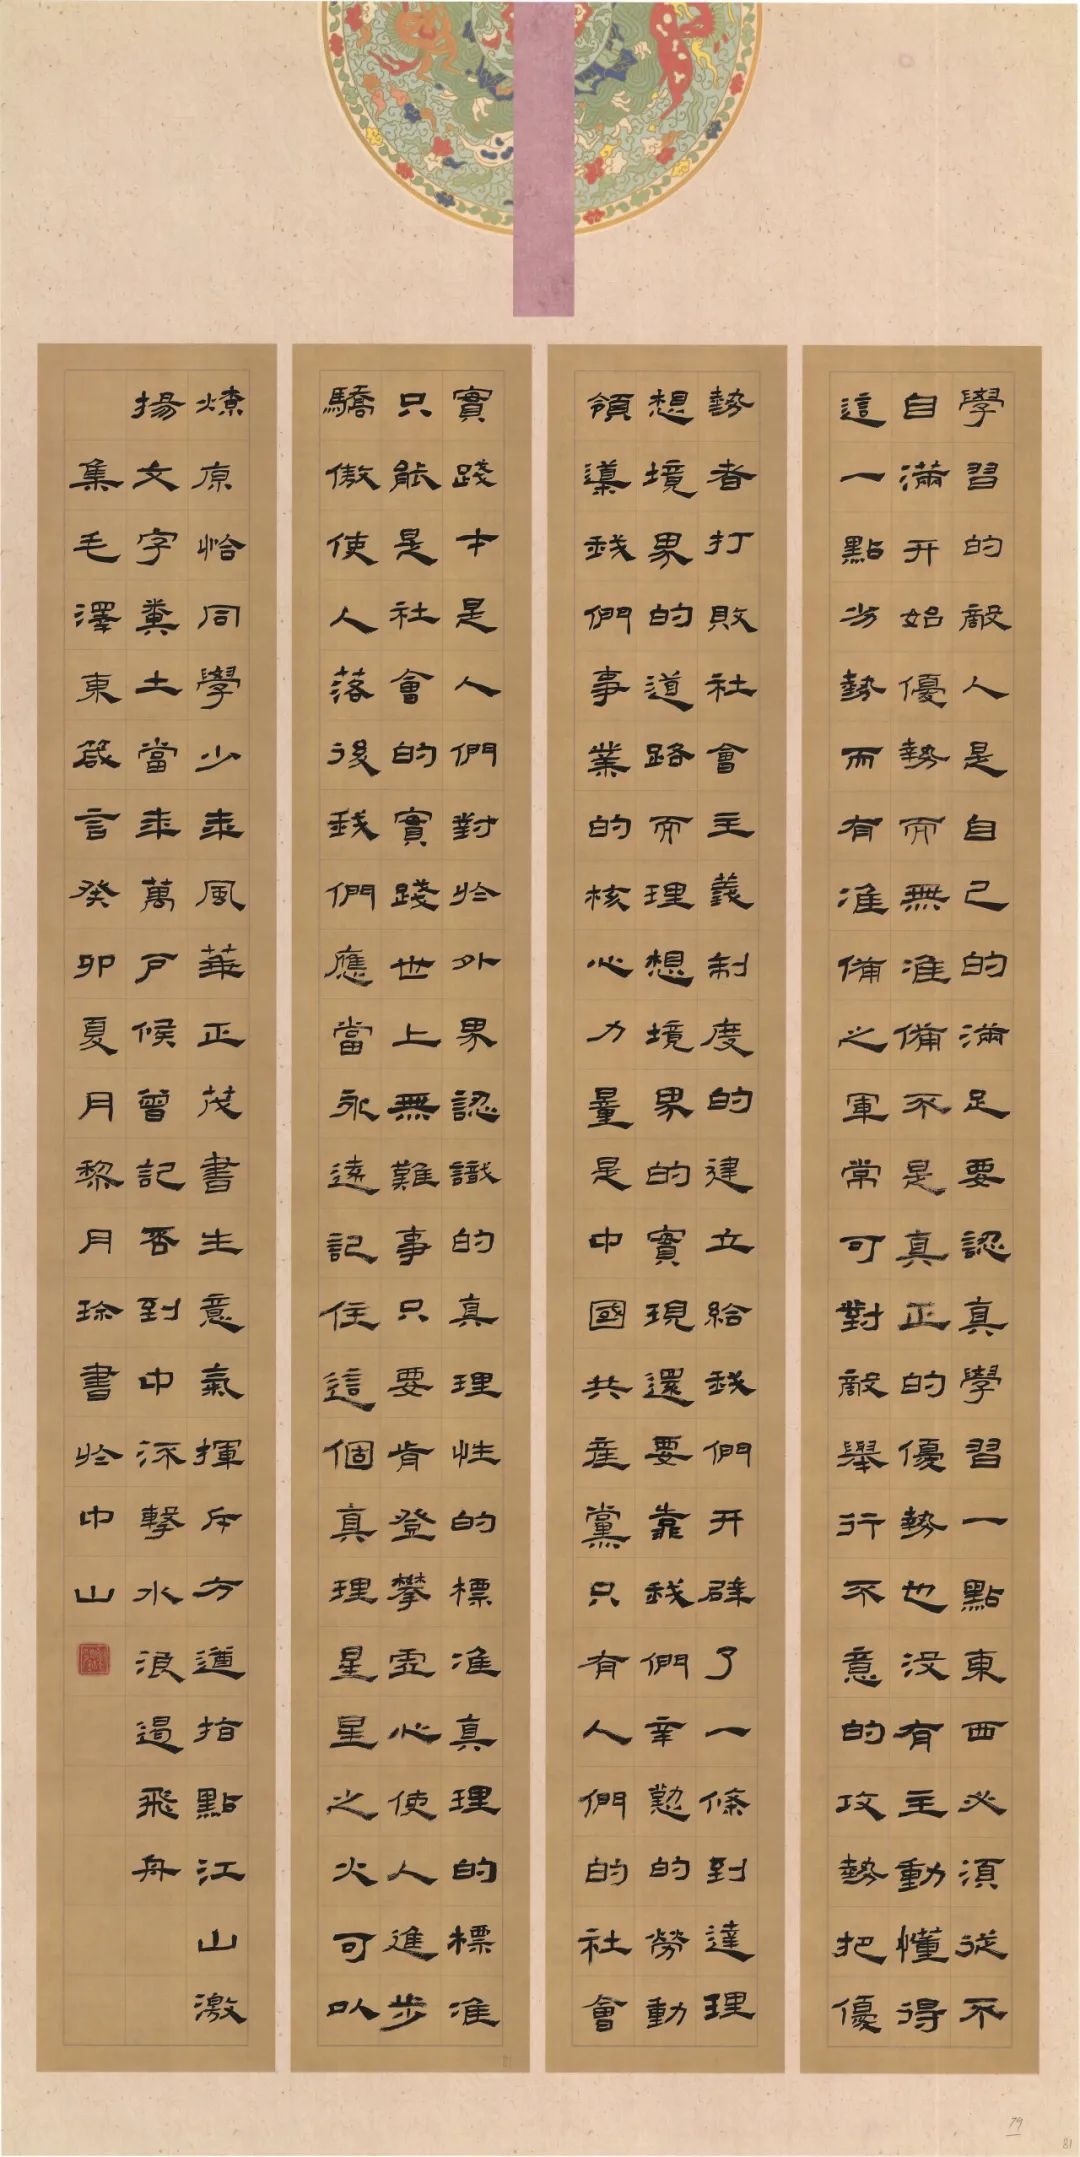 學習的敵人是自己的滿足要認真學習一點東西必須從不
自滿开始優勢而無准備不是真正的優勢也没有主動懂得
這一點劣勢而有准備之軍常可對敵舉行不意的攻勢把優
勢者打敗社會主義制度的建立給我們开辟了一條到達理
想境界的道路而理想境界的實現還要靠我們辛勤的勞動
領導我們事業的核心力量是中國共産黨只有人們的社會
實踐才是人們對於外界認識的真理性的標准真理的標准
只能是社會的實踐世上無難事只要肯登攀虚心使人進步
驕傲使人落後我們應當永遠記住這個真理星星之火可以
燎原恰同學少年風華正茂書生意氣揮斥方遒指點江山激
揚文字糞土當年萬户候曾記否到中流擊水浪遏飛舟
集毛澤東箴言癸卯夏月黎月珍書於中山
79
81